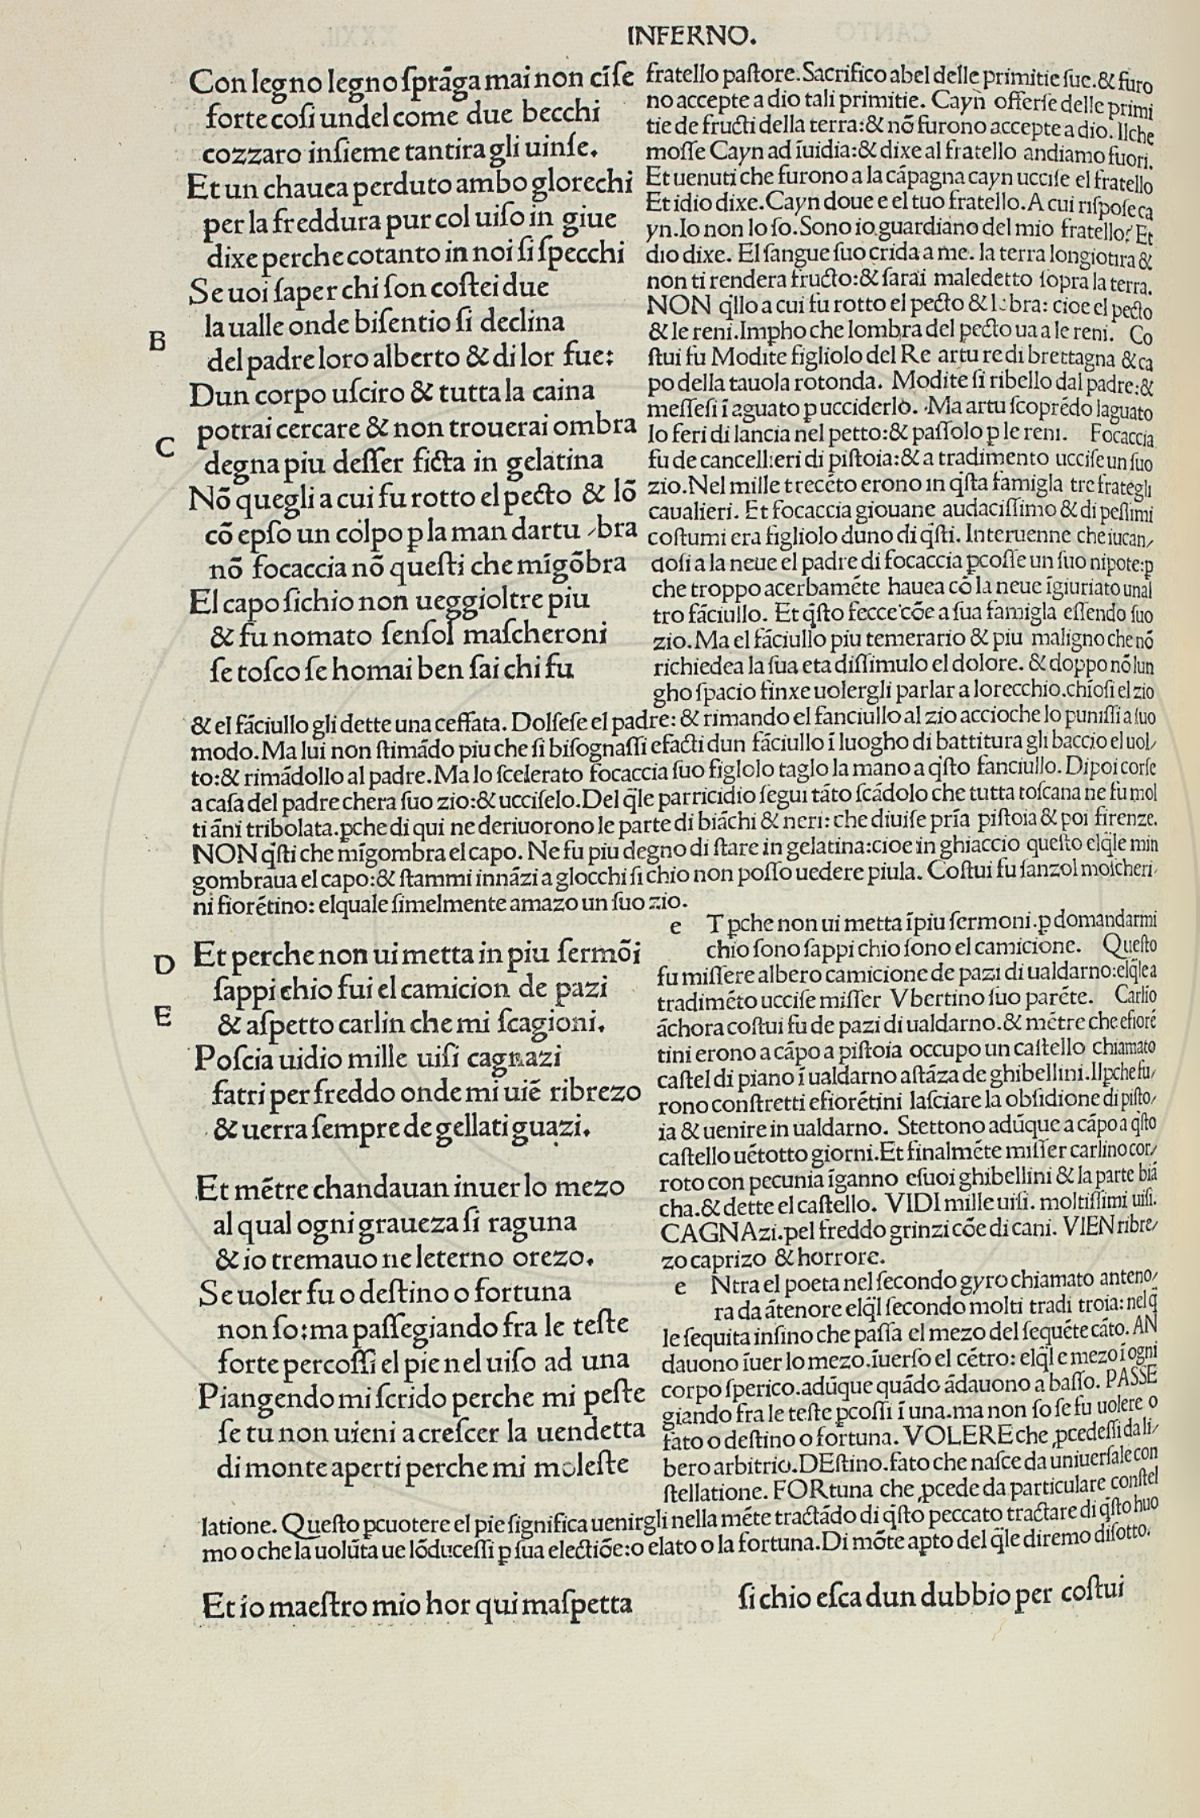 INFERNO.
Con legno legno ſprãga mai non cĩſe
forte coſi undel come due becchi
cozzaro inſieme tantira gli uinſe.
Et un chauea perduto ambo glorechi
per la freddura pur col uiſo in giue
dixe perche cotanto in noi ſi ſpecchi
Se uoi ſaper chi ſon coſtei due
la ualle onde biſentio ſi declina
B
del padre loro alberto & di lor fue:
Dun corpo uſciro & tutta la caina
potrai cercare & non trouerai ombra
C
degna piu deſſer ficta in gelatina
Nõ quegli a cui fu rotto el pecto & lõ
cõ epſo un colpo p la man dartu ⸗bra
nõ focaccia nõ queſti che mĩgõbra
El capo ſichio non ueggioltre piu
& fu nomato ſenſol maſcheroni
ſe toſco ſe homai ben ſai chi fu
fratello paſtore. Sacrifico abel delle primitie ſue. & furo
no accepte a dio tali primitie. Cayn offerſe delle primi
tie de fructi della terra: & nõ furono accepte a dio. Ilche
moſſe Cayn ad ĩuidia: & dixe al fratello andiamo fuori.
Et uenuti che furono a la cãpagna cayn ucciſe el fratello
Et idio dixe. Cayn doue e el tuo fratello. A cui riſpoſe ca
yn. Io non lo ſo. Sono io guardiano del mio fratello? Et
dio dixe. El ſangue ſuo crida a me. la terra longiotira &
non ti rendera fructo: & ſarai maledetto ſopra la terra.
NON q̃llo a cui fu rotto el pecto & lõbra: cioe el pecto
& le reni. Impho che lombra del pecto ua a le reni. Co
ſtui fu Modite figliolo del Re artu re di brettagna & ca
po della tauola rotonda. Modite ſi ribello dal padre: &
meſſeſi ĩ aguato p ucciderlo. Ma artu ſcoprẽdo laguato
lo feri di lancia nel petto: & paſſolo p le reni. Focaccia
fu de cancellieri di piſtoia: & a tradimento ucciſe un ſuo
zio. Nel mille trecẽto erono in q̃ſta famigla tre frategli
caualieri. Et focaccia giouane audaciſſimo & di peſſimi
coſtumi era figliolo duno di q̃ſti. Interuenne che iucan⸗
doſi a la neue el padre di focaccia pcoſſe un ſuo nipote: p
che troppo acerbamẽte hauea cõ la neue ĩgiuriato unal
tro fãciullo. Et q̃ſto fecce cõe a ſua famigla eſſendo ſuo
zio. Ma el fãciullo piu temerario & piu maligno che nõ
richiedea la ſua eta diſſimulo el dolore. & doppo nõ lun
gho ſpacio finxe uolergli parlar a lorecchio. chĩoſi el zio
& el fãciullo gli dette una ceffata. Dolſeſe el padre: & rimando el fanciullo al zio accioche lo puniſſi a ſuo
modo. Ma lui non ſtimãdo piu che ſi biſognaſſi efacti dun fãciullo ĩ luogho di battitura gli baccio el uol⸗
to: & rimãdollo al padre. Ma lo ſcelerato focaccia ſuo figlolo taglo la mano a q̃ſto fanciullo. Dipoi corſe
a caſa del padre chera ſuo zio: & ucciſelo. Del q̃le parricidio ſegui tãto ſcãdolo che tutta toſcana ne fu mol
ti ãni tribolata. pche di qui ne deriuorono le parte di biãchi & neri: che diuiſe prĩa piſtoia & poi firenze.
NON q̃ſti che mĩgombra el capo. Ne fu piu degno di ſtare in gelatina: cioe in ghiaccio queſto elq̃le min
gombraua el capo: & ſtammi innãzi a glocchi ſi chio non poſſo uedere piula. Coſtui fu ſanzol moſcheri⸗
ni fiorẽtino: elquale ſimelmente amazo un ſuo zio.
D
Et perche non ui metta in piu ſermõi
ſappi chio fui el camicion de pazi
E
& aſpetto carlin che mi ſcagioni.
Poſcia uidio mille uiſi cagnazi
fatri per freddo onde mi uiẽ ribrezo
& uerra ſempre de gellati guazi.
Et mẽtre chandauan inuer lo mezo
al qual ogni graueza ſi raguna
& io tremauo ne leterno orezo.
Se uoler fu o deſtino o fortuna
non ſo: ma paſſegiando fra le teſte
forte percoſſi el pie nel uiſo ad una
Piangendo mi ſcrido perche mi peſte
ſe tu non uieni a creſcer la uendetta
di monte aperti perche mi moleſte
e T pche non ui metta ĩ piu ſermoni. p domandarmi
chio ſono ſappi chio ſono el camicione. Queſto
fu miſſere albero camicione de pazi di ualdarno: elq̃le a
tradimẽto ucciſe miſſer Vbertino ſuo parẽte. Carlio
ãchora coſtui fu de pazi di ualdarno. & mẽtre che efiorẽ
tini erono a cãpo a piſtoia occupo un caſtello chiamato
caſtel di piano ĩ ualdarno aſtãza de ghibellini. Il pche fu⸗
rono conſtretti efiorẽtini laſciare la obſidione di piſto⸗
ia & uenire in ualdarno. Stettono adũque a cãpo a q̃ſto
caſtello uẽtotto giorni. Et finalmẽte miſſer carlino cor⸗
roto con pecunia ĩganno eſuoi ghibellini & la parte biã
cha. & dette el caſtello. VIDI mille uiſi. moltiſſimi uiſi.
CAGNAzi. pel freddo grinzi cõe di cani. VIEN ribre⸗
zo caprizo & horrore.
e Ntra el poeta nel ſecondo gyro chiamato anteno⸗
ra da ãtenore elq̃l ſecondo molti tradi troia: nel q̃
le ſequita inſino che paſſa el mezo del ſequẽte cãto. AN
dauono ĩuer lo mezo. ĩuerſo el cẽtro: elq̃l e mezo ĩ ogni
corpo ſperico. adũque quãdo ãdauono a baſſo. PASSE
giando fra le teſte pcoſſi ĩ una. ma non ſo ſe fu uolere o
fato o deſtino o fortuna. VOLERE che pcedeſſi da li⸗
bero arbitrio. DEſtino. fato che naſce da uniuerſale con
ſtellatione. FORtuna che pcede da particulare conſtel
latione. Queſto pcuotere el pie ſignifica uenirgli nella mẽte tractãdo di q̃ſto peccato tractare di q̃ſto huo
mo o che la uolũta ue lõduceſſi p ſua electiõe: o elato o la fortuna. Di mõte apto del q̃le diremo diſotto.
Et io maeſtro mio hor qui maſpetta
ſi chio eſca dun dubbio per coſtui